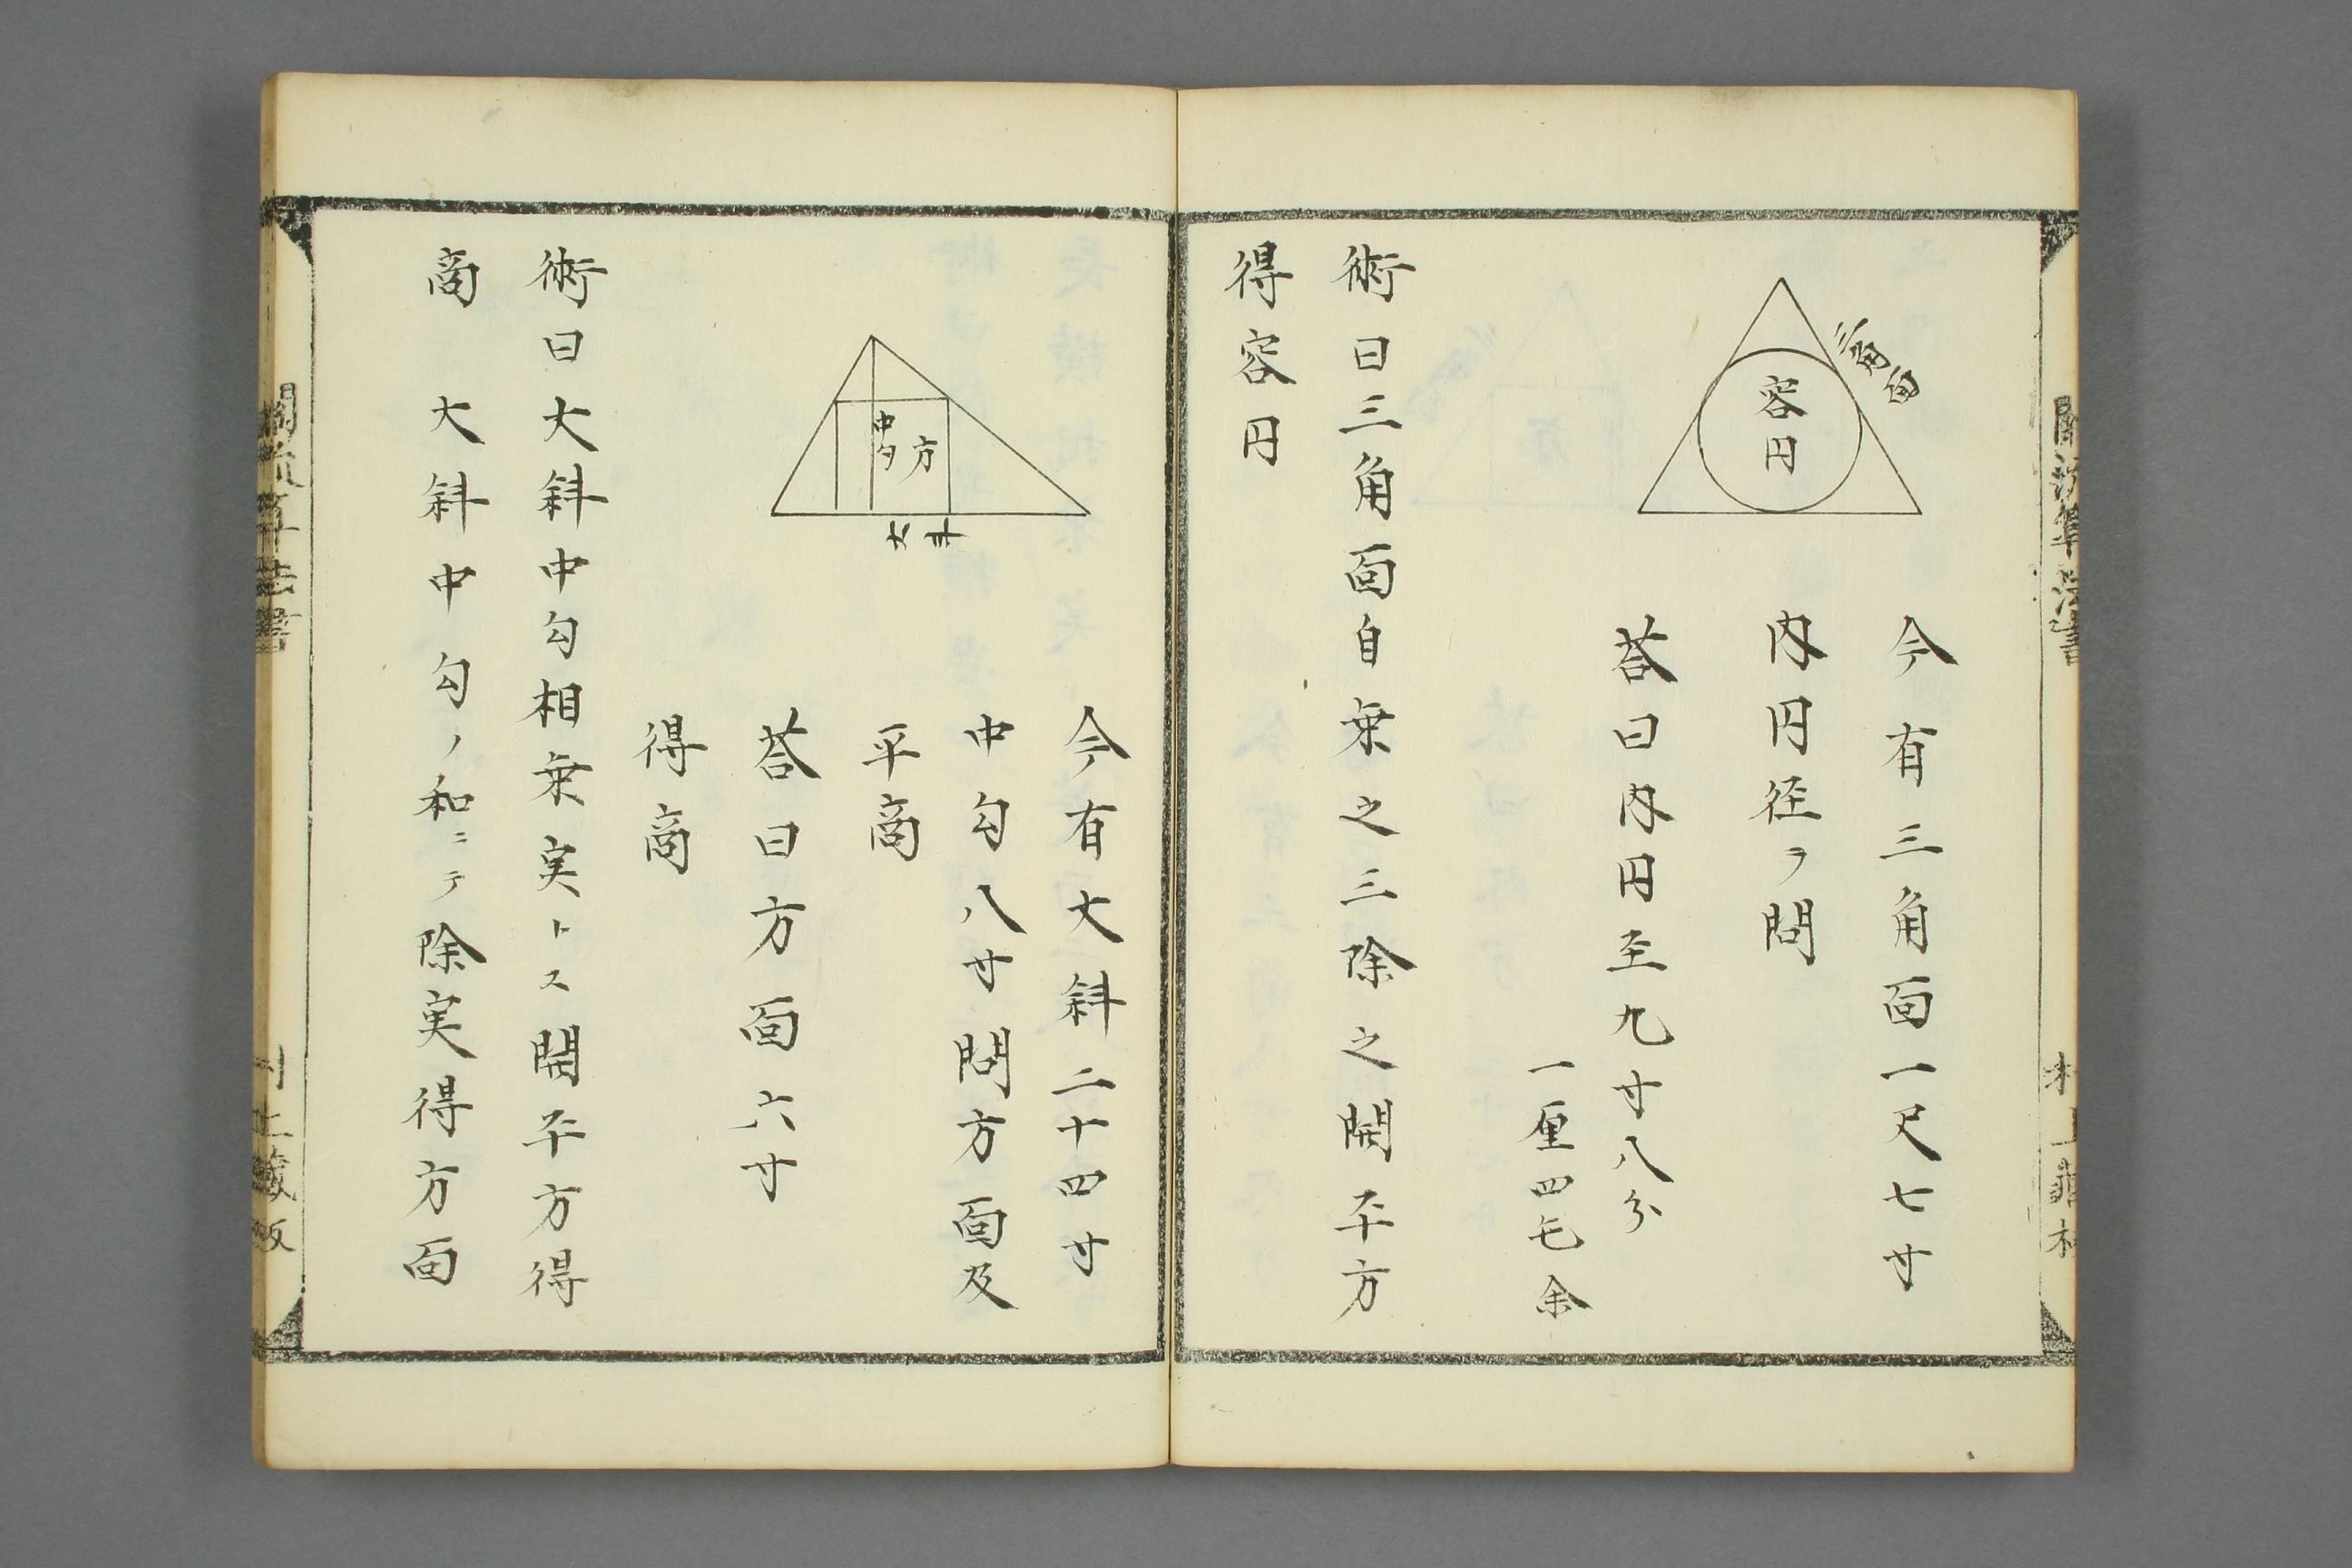 三角面
容円
今有三角面一尺七寸
内円径ヲ問
荅曰内円至九寸八分
一厘四毛余
術曰三角面自乗之三除之開平方
得容円
中勾
方
大斜
今有大斜二十四寸
中勾八寸問方面及
平商
荅曰方面六寸
得商
術曰大斜中勾相乗実トス開平方得
商 大斜中勾ノ和ニテ除実得方面